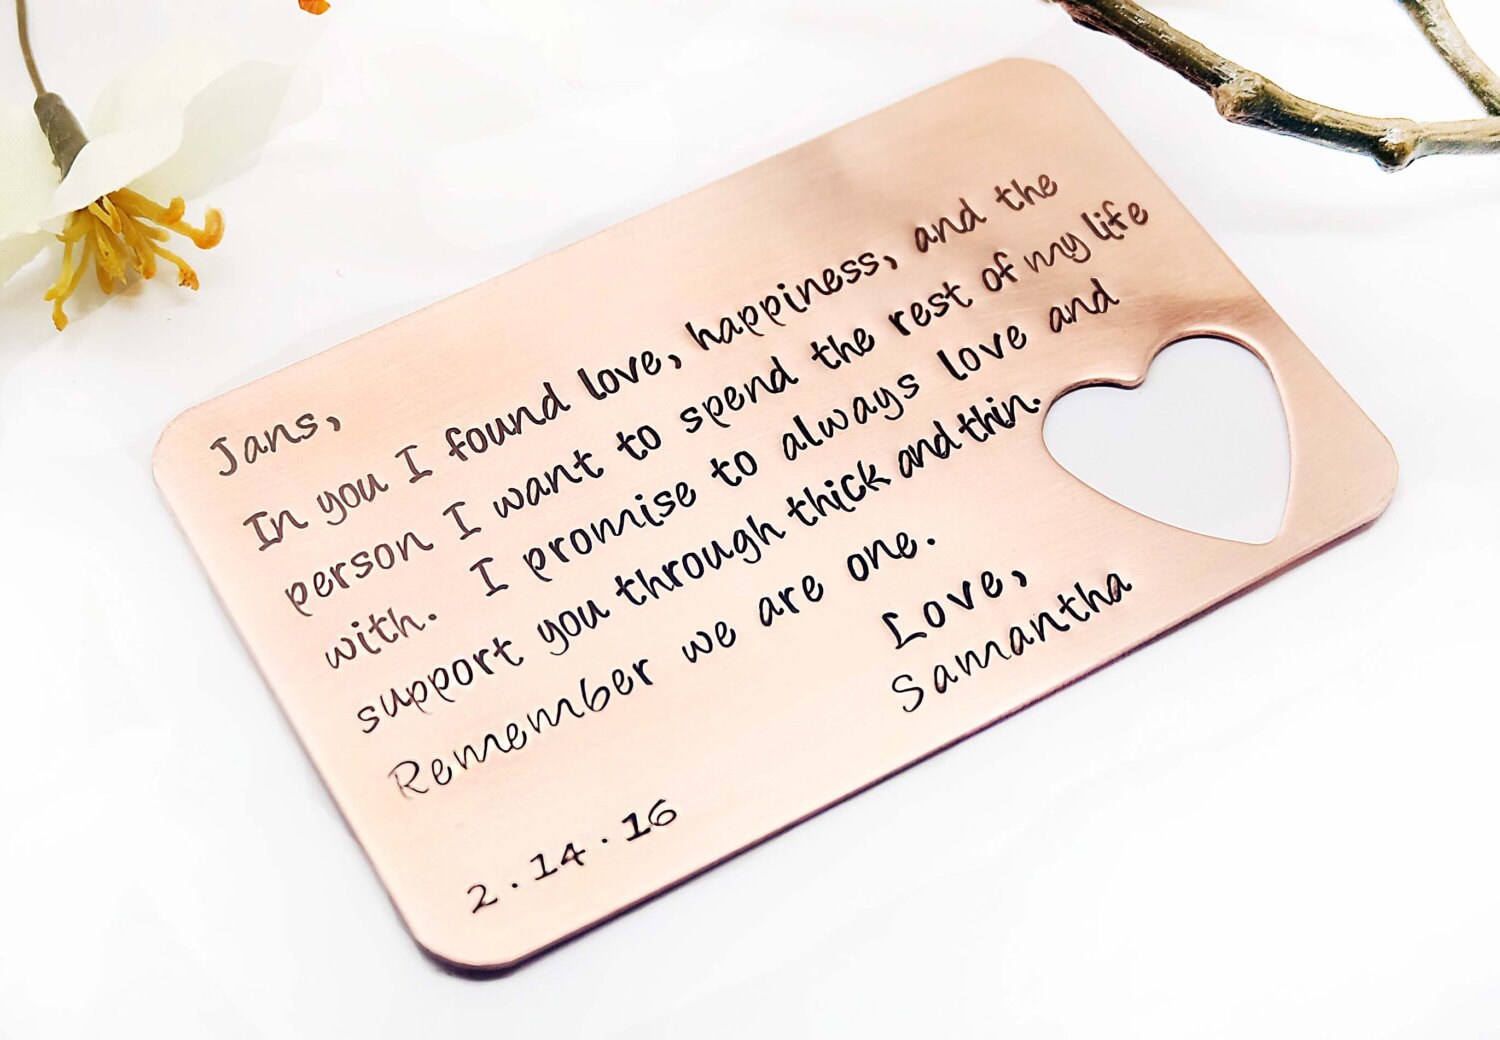 Jans,
In you I found love, happiness, and the
person I want to spend the rest of my life
with. I promise to always love and
support you through thick and thin.
Remember we are one.
Love,
Samantha
2.14.16